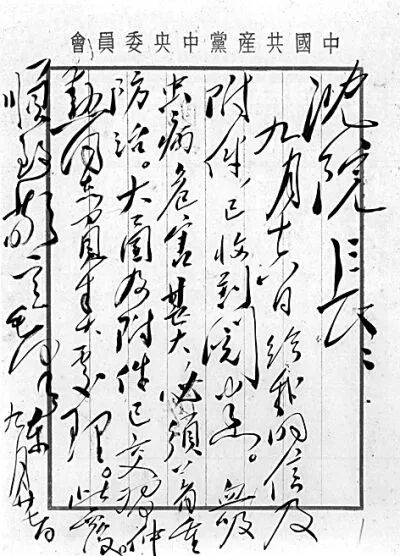 中國共産黨中央委員會
沈院長：
九月十六日给我的信及
附件，已收到閱悉。血吸
虫病危害甚大，必須着重
防治。大函及附件已交習仲
勳同志負責處理。此覆。
順致敬意 毛澤東
九月廿七日